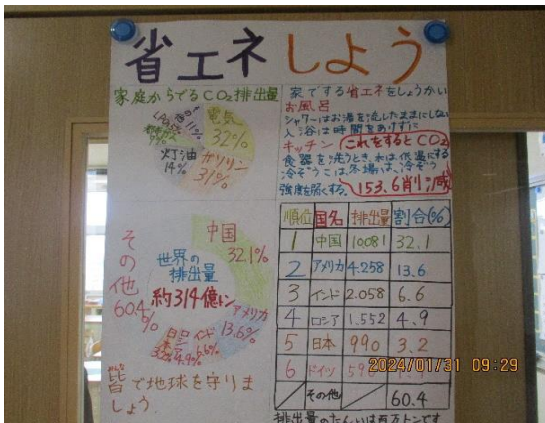 省エネしよう
家庭からでるCO2排出量
電気
32%
ガソリン
31%
灯油
14%
家でする省エネをしょうかい
お風呂
シャワーはお湯を流したままにしない
入浴は時間をあけずに
キッチン
これをするとCO2
153.6削減
食器を洗うとき、水は、低温にする
冷ぞうこは、冬場は、冷ぞう
強度を弱くする。
世界の
排出量
約314億トン
中国
32.1%
アメリカ
13.6%
インド
6.6%
ロシア
4.9%
日本
その他
60.4%
皆で地球を守りま
しょう。
順位 国名 排出量 割合(%)
1 中国 10.081 32.1
2 アメリカ 4.258 13.6
3 インド 2.058 6.6
4 ロシア 1.552 4.9
5 日本 990 3.2
6 ドイツ
その他 60.4
排出量のたんいは百万トンです
2024/01/31 09:29